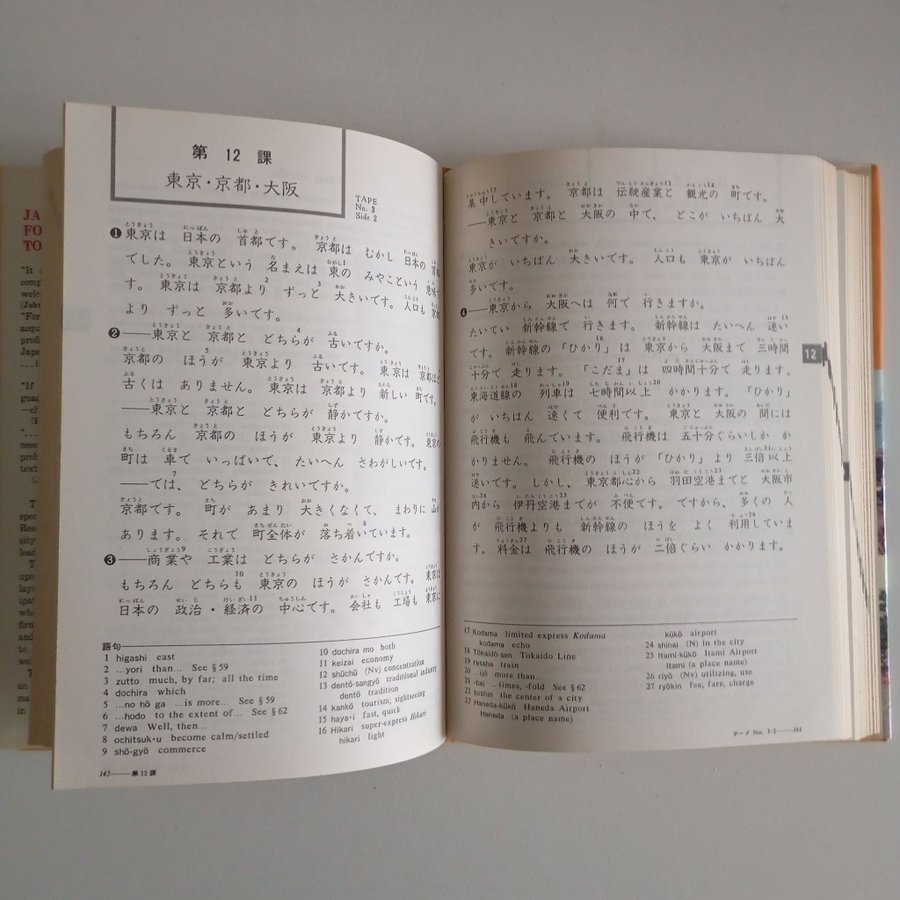 第 12 課
東京・京都・大阪
TAPE
No. 3
Side 2
❶東京は 日本の 首都です。 京都は むかし 日本の
でした。 東京という 名まえは 東の みやこという
す。 東京は 京都より ずっと 大きいです。人口も
より ずっと 多いです。
❷——東京と 京都と どちらが 古いですか。
京都の ほうが 東京より 古いです。 東京は
古くは ありません。 東京は 京都より 新しい 町です。
——東京と 京都と どちらが 静かですか。
もちろん 京都の ほうが 東京より 静かです。
町は 車で いっぱいで、 たいへん さわがしいです。
——では、 どちらが きれいですか。
京都です。 町が あまり 大きくなくて、 まわりに
あります。 それで 町全体が 落ち着いています。
❸——商業や 工業は どちらが さかんですか。
もちろん どちらも 東京の ほうが さかんです。
日本の 政治・経済の 中心です。 会社も 工場も 東京に
語句
1 higashi east
2 ...yori than... See §59
3 zutto much, by far; all the time
4 dochira which
5 ...no hō ga ...is more... See §59
6 ...hodo to the extent of... See §62
7 dewa Well, then...
8 ochitsuk·u become calm/settled
9 shō-gyō commerce
10 dochira mo both
11 keizai economy
12 shūchū (Nv) concentration
13 dentō-sangyō traditional industry
dentō tradition
14 kankō tourism, sightseeing
15 haya·i fast, quick
16 Hikari super-express Hikari
hikari light
142——第12課
集中しています。 京都は 伝統産業と 観光の 町です。
——東京と 京都と 大阪の 中で、 どこが いちばん 大
きいですか。
東京が いちばん 大きいです。 人口も 東京が いちばん
多いです。
❹——東京から 大阪へは 何で 行きますか。
たいてい 新幹線で 行きます。 新幹線は たいへん 速い
です。 新幹線の「ひかり」は 東京から 大阪まで 三時間
十分で 走ります。「こだま」は 四時間十分で 走ります。
東海道線の 列車は 七時間以上 かかります。「ひかり」
が いちばん 速くて 便利です。 東京と 大阪の 間には
飛行機も 飛んでいます。 飛行機は 五十分ぐらいしか か
かりません。 飛行機の ほうが「ひかり」より 三倍以上
速いです。 しかし、 東京都心から 羽田空港までと 大阪市
内から 伊丹空港までが 不便です。 ですから、 多くの 人
が 飛行機よりも 新幹線の ほうを よく 利用していま
す。 料金は 飛行機の ほうが 二倍ぐらい かかります。
12
17 Kodama limited express Kodama
kodama echo
18 Tōkaidō-sen Tokaido Line
19 ressha train
20 ...ijō more than...
21 -bai ...times, -fold See §62
22 toshin the center of a city
23 Haneda-kūkō Haneda Airport
Haneda (a place name)
kūkō airport
24 shinai (N) in the city
25 Itami-kūkō Itami Airport
Itami (a place name)
26 riyō (Nv) utilizing, use
27 ryōkin fee, fare, charge
テープ No. 3-2——143
JA
FO
TO